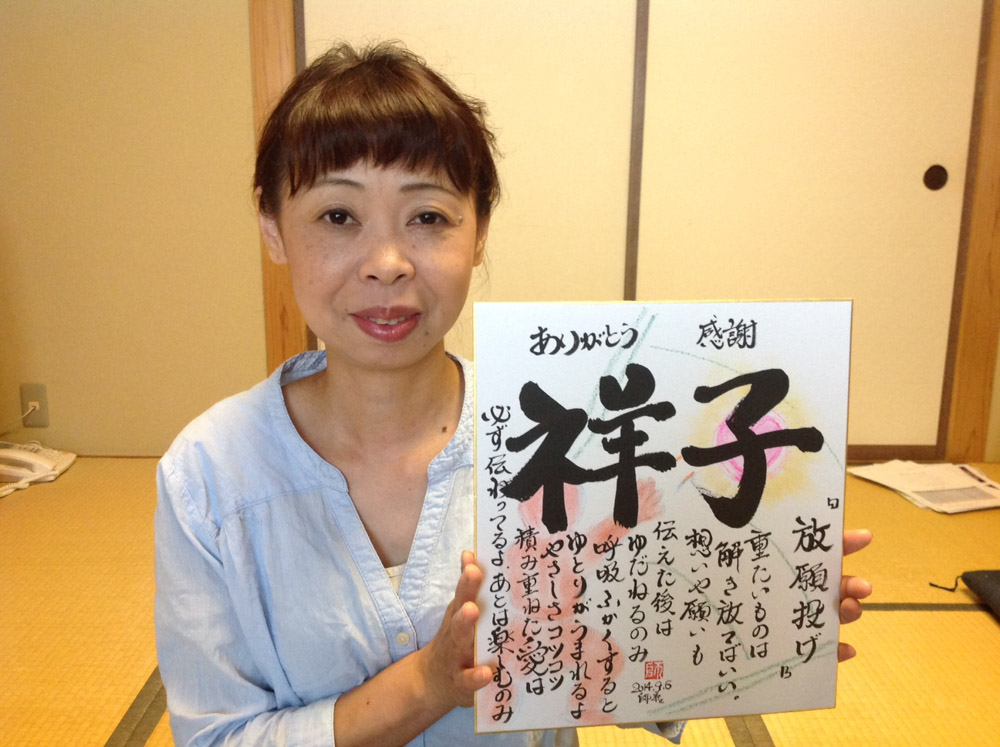 ありがとう 感謝
祥子
「放願投げ」
重たいものは
解き放てばいい。
想いや願いも
伝えた後は
ゆだねるのみ
呼吸ふかくすると
ゆとりがうまれるよ
やさしさコツコツ
積み重ねた愛は
必ず伝わってるよ。あとは楽しむのみ
2014.9.6